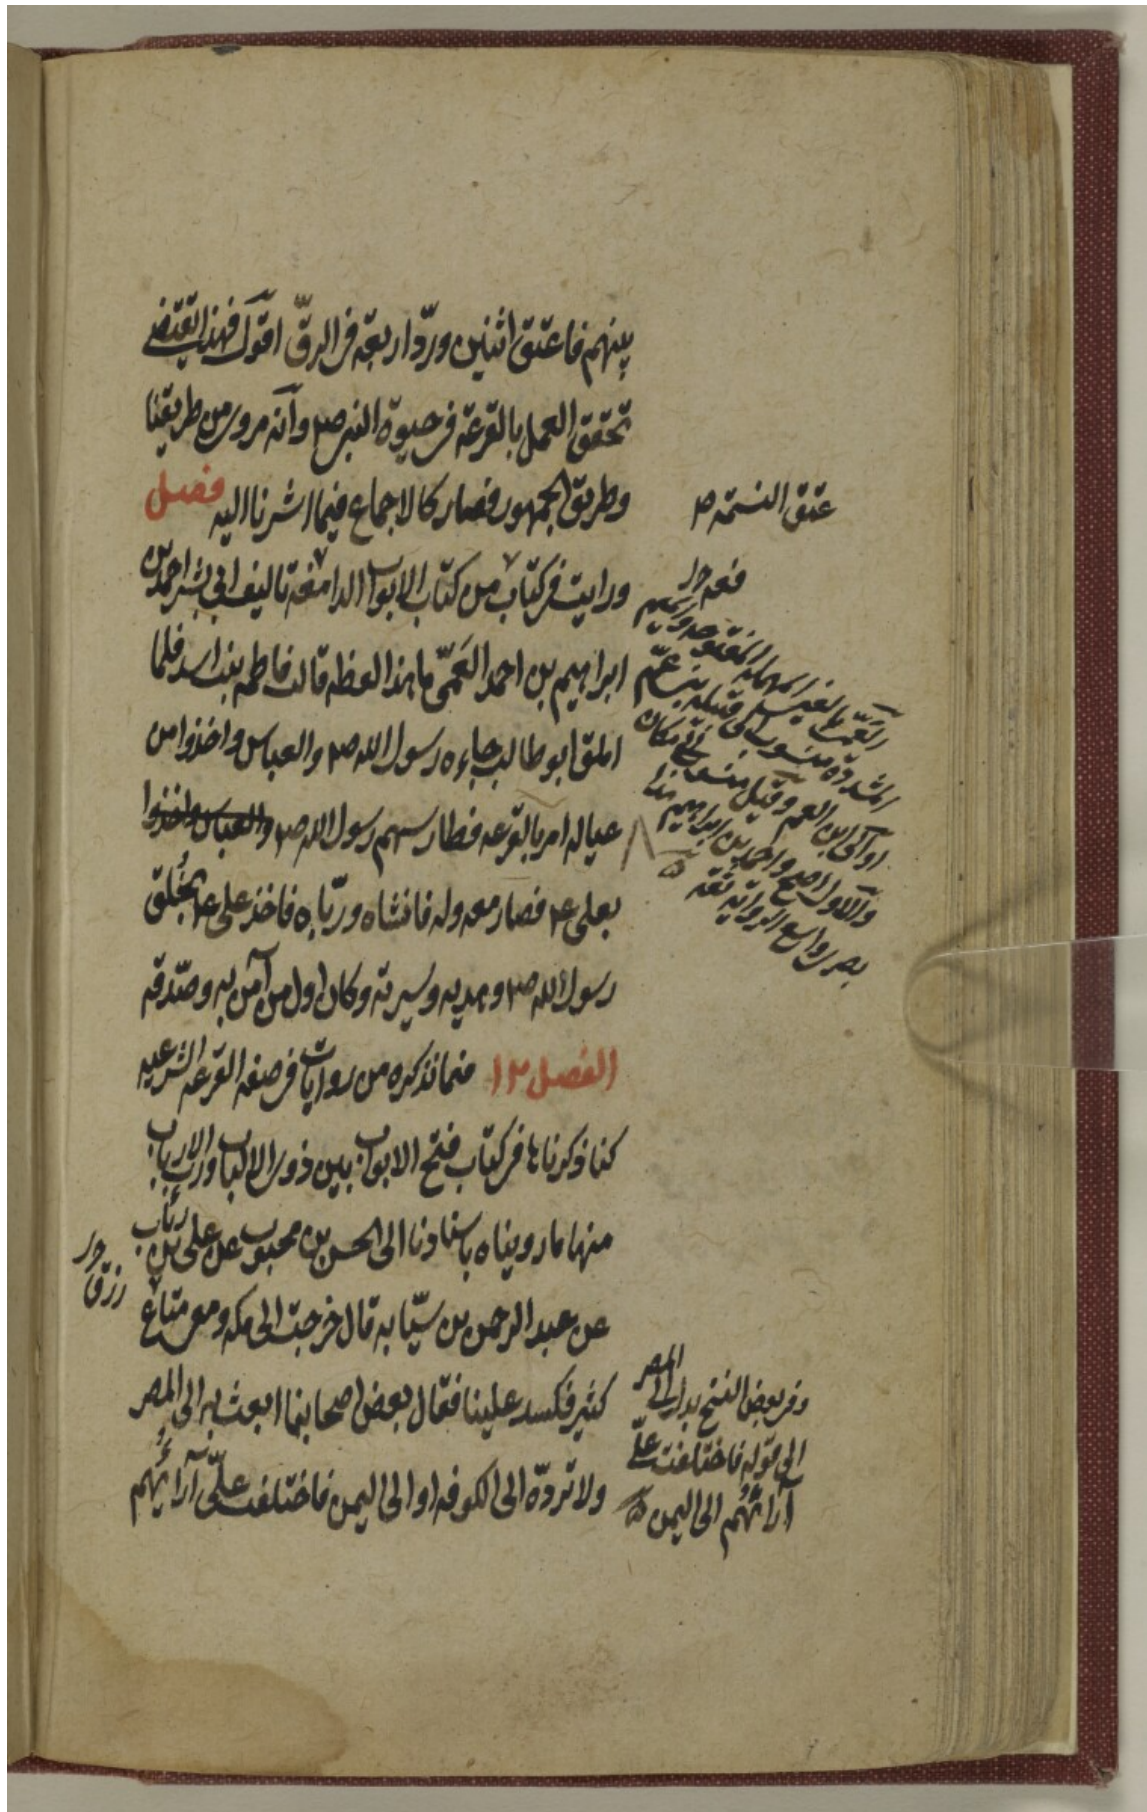 بينهم فاعتق اثنين وردّ اربعة في الرقّ اقول فهذا يقتضي
تحقق العمل بالقرعة في حيوة النبي ص وانه مروي من طريقنا
وطريق الجمهور فصار كالاجماع فيما اشرنا اليه فصل
عتق النسمة ص
ورايت في كتاب من كتاب الابواب الدامغة تاليف ابي بشر احمد بن
ابراهيم بن احمد العَمّي ما هذا لفظه قالت فاطمة بنت اسد فلما
املق ابو طالب جاءه رسول الله ص والعباس واخذوا من
عياله امر بالقرعه فطار سهم رسول الله ص والعباس واخذوا
بعلي ع فصار معه وله فانشاه وربّاه فاخذ علي ع بخُلق
رسول الله ص وهديه وسيرته وكان اول من آمن به وصدّقه
الفصل ١٢ فيما نذكره من روايات في صفة القرعة الشرعيه
كنا ذكرناها في كتاب فتح الابواب بين ذوي الالباب ورب الارباب
منها ما رويناه باسنادنا الى الحسن بن محبوب عن علي بن رئاب
عن عبد الرحمن بن سيّابه قال خرجت الى مكه ومعي متاع
كثير فكسد علينا فقال بعض اصحابنا ابعث به الى المصر
ولا تردّه الى الكوفه او الى اليمن فاختلفت عليّ آراؤهم
العَمّي بالعين المهملة المفتوحة والميم
المشددة منسوب الى قبيلة بني عمّ
او الى ابن العم وقيل منسوب الى مكان
والاول اصح واحمد بن ابراهيم هذا
بصري واسع الرواية ثقة
رزق
وفي بعض النسخ بدل الى المصر
الى قوله فاختلفت عليّ
آراؤهم الى اليمن